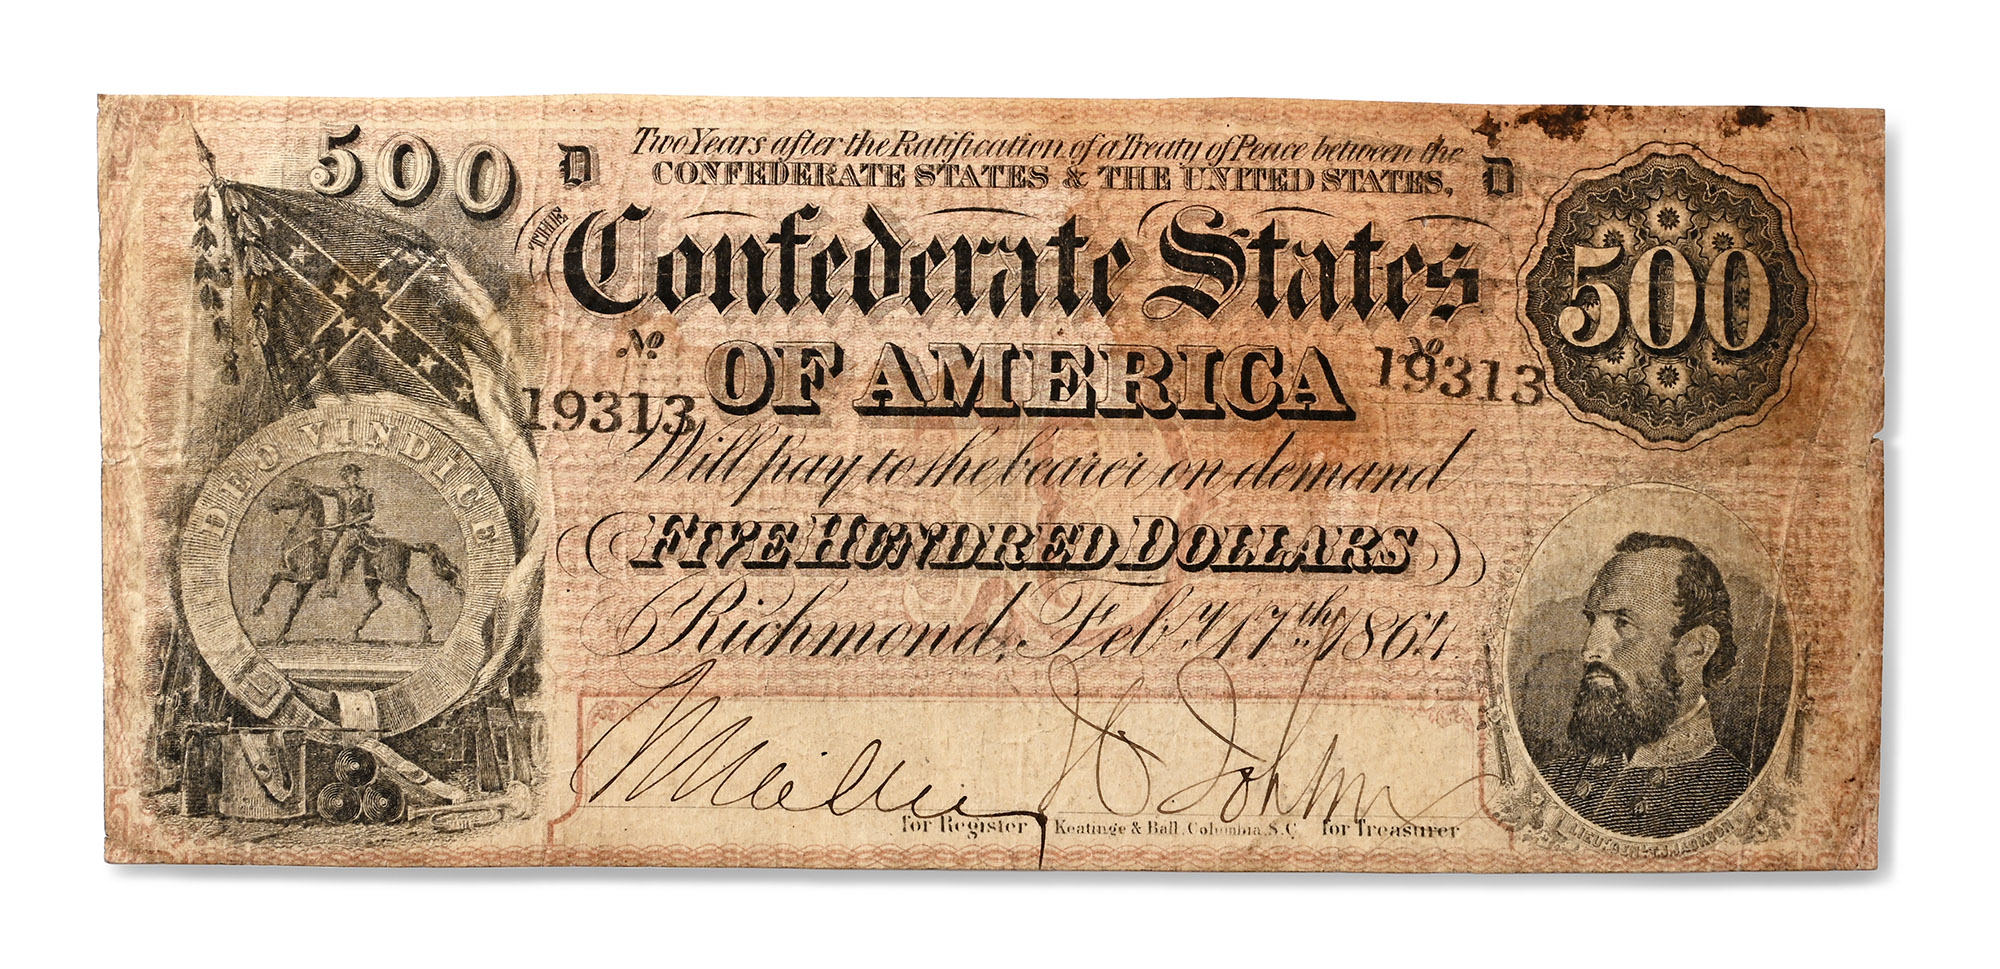 500
D
Two Years after the Ratification of a Treaty of Peace between the
CONFEDERATE STATES & THE UNITED STATES,
D
500
THE
Confederate States
OF AMERICA
No.
19313
No.
19313
Will pay to the bearer on demand
FIVE HUNDRED DOLLARS
Richmond, Feby. 17th, 1864.
DEO VINDICE
for Register
Keatinge & Ball, Columbia, S.C.
for Treasurer
LIEU. GENL. T.J. JACKSON